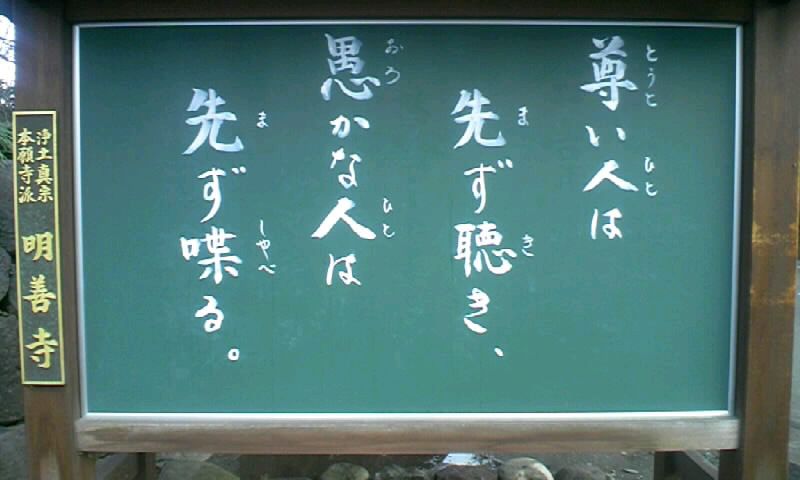 尊い人は
とうと
ひと
先ず聴き、
ま
き
愚かな人は
おろ
ひと
先ず喋る。
ま
しゃべ
浄土真宗
本願寺派
明善寺